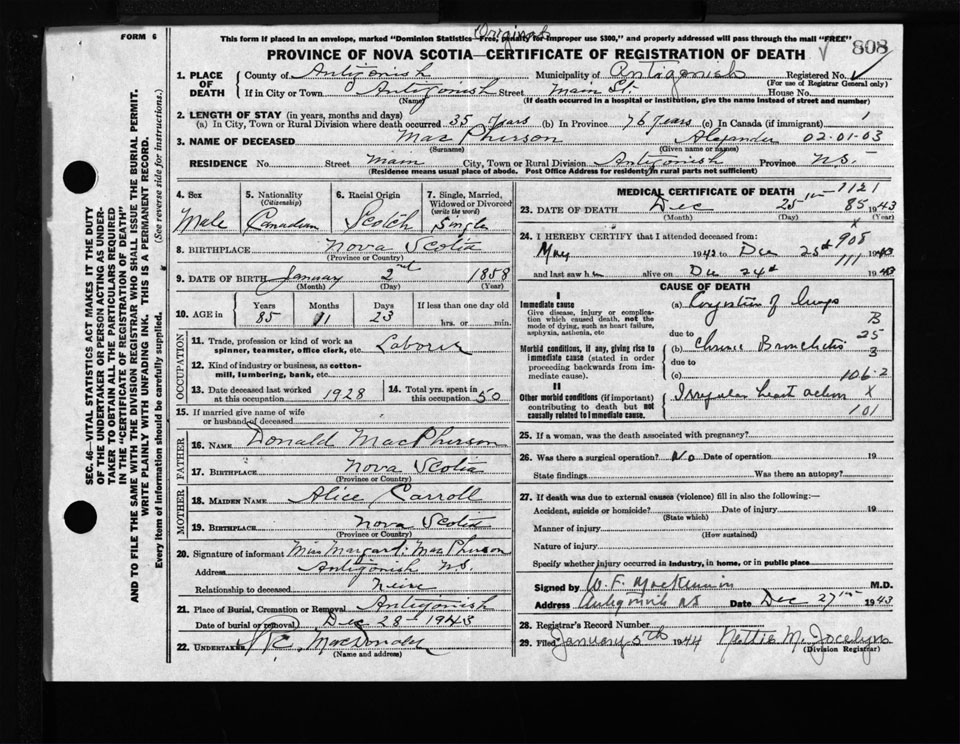 Original
FORM 6
This form if placed in an envelope, marked "Dominion Statistics—Free, penalty for improper use $300," and properly addressed will pass through the mail "FREE"
PROVINCE OF NOVA SCOTIA—CERTIFICATE OF REGISTRATION OF DEATH
808
1. PLACE OF DEATH
County of Antigonish Municipality of Antigonish Registered No.
(For use of Registrar General only)
If in City or Town Antigonish Street Main St. House No.
(Name) (If death occurred in a hospital or institution, give the name instead of street and number)
2. LENGTH OF STAY (in years, months and days)
(a) In City, Town or Rural Division where death occurred 35 years (b) In Province 76 years (c) In Canada (if immigrant) 1
3. NAME OF DECEASED MacPherson Alexander 02-01-03
(Surname) (Given name or names)
RESIDENCE No. Street Main City, Town or Rural Division Antigonish Province N.S.
(Residence means usual place of abode. Post Office Address for residents in rural parts not sufficient)
SEC. 46—VITAL STATISTICS ACT MAKES IT THE DUTY
OF THE UNDERTAKER OR PERSON ACTING AS UNDER-
TAKER TO OBTAIN ALL THE PARTICULARS REQUIRED
IN THE "CERTIFICATE OF REGISTRATION OF DEATH"
AND TO FILE THE SAME WITH THE DIVISION REGISTRAR WHO SHALL ISSUE THE BURIAL PERMIT.
WRITE PLAINLY WITH UNFADING INK. THIS IS A PERMANENT RECORD.
Every item of information should be carefully supplied. (See reverse side for instructions.)
4. Sex Male
5. Nationality (Citizenship) Canadian
6. Racial Origin Scotch
7. Single, Married, Widowed or Divorced (write the word) Single
8. BIRTHPLACE Nova Scotia
(Province or Country)
9. DATE OF BIRTH January 2nd 1858
(Month) (Day) (Year)
10. AGE in Years 85 Months 11 Days 23 If less than one day old hrs. or min.
OCCUPATION
11. Trade, profession or kind of work as spinner, teamster, office clerk, etc. Laborer
12. Kind of industry or business, as cotton-mill, lumbering, bank, etc.
13. Date deceased last worked at this occupation 1928
14. Total yrs. spent in this occupation 50
15. If married give name of wife or husband of deceased
FATHER
16. NAME Donald MacPherson
17. BIRTHPLACE Nova Scotia
(Province or Country)
MOTHER
18. MAIDEN NAME Alice Carroll
19. BIRTHPLACE Nova Scotia
(Province or Country)
20. Signature of informant Miss Margaret MacPherson
Address Antigonish N.S.
Relationship to deceased Neice
21. Place of Burial, Cremation or Removal Antigonish
Date of burial or removal Dec 28th 1943
22. UNDERTAKER
(Name and address)
MEDICAL CERTIFICATE OF DEATH 1121
23. DATE OF DEATH Dec 25th 85 1943
(Month) (Day) (Year)
24. I HEREBY CERTIFY that I attended deceased from: 908
May 1942 to Dec 25th 1943
111
and last saw him alive on Dec 24th 1943
CAUSE OF DEATH
I
Immediate cause
Give disease, injury or complication which caused death, not the mode of dying, such as heart failure, asphyxia, asthenia, etc
(a) Congestion of lungs
B
due to 25
Morbid conditions, if any, giving rise to immediate cause (stated in order proceeding backwards from immediate cause).
(b) Chronic Bronchitis 3
due to
(c) 106-2
II
Other morbid conditions (if important) contributing to death but not causally related to immediate cause.
Irregular heart action X
101
25. If a woman, was the death associated with pregnancy?
26. Was there a surgical operation? No Date of operation 19
State findings Was there an autopsy?
27. If death was due to external causes (violence) fill in also the following:—
Accident, suicide or homicide? Date of injury 19
(State which)
Manner of injury
(How sustained)
Nature of injury
Specify whether injury occurred in industry, in home, or in public place
Signed by W. F. MacKinnon M.D.
Address Antigonish NS Date Dec 27th 1943
28. Registrar's Record Number
29. Filed January 5th 1944 Nettie M. Jocelyn
(Division Registrar)